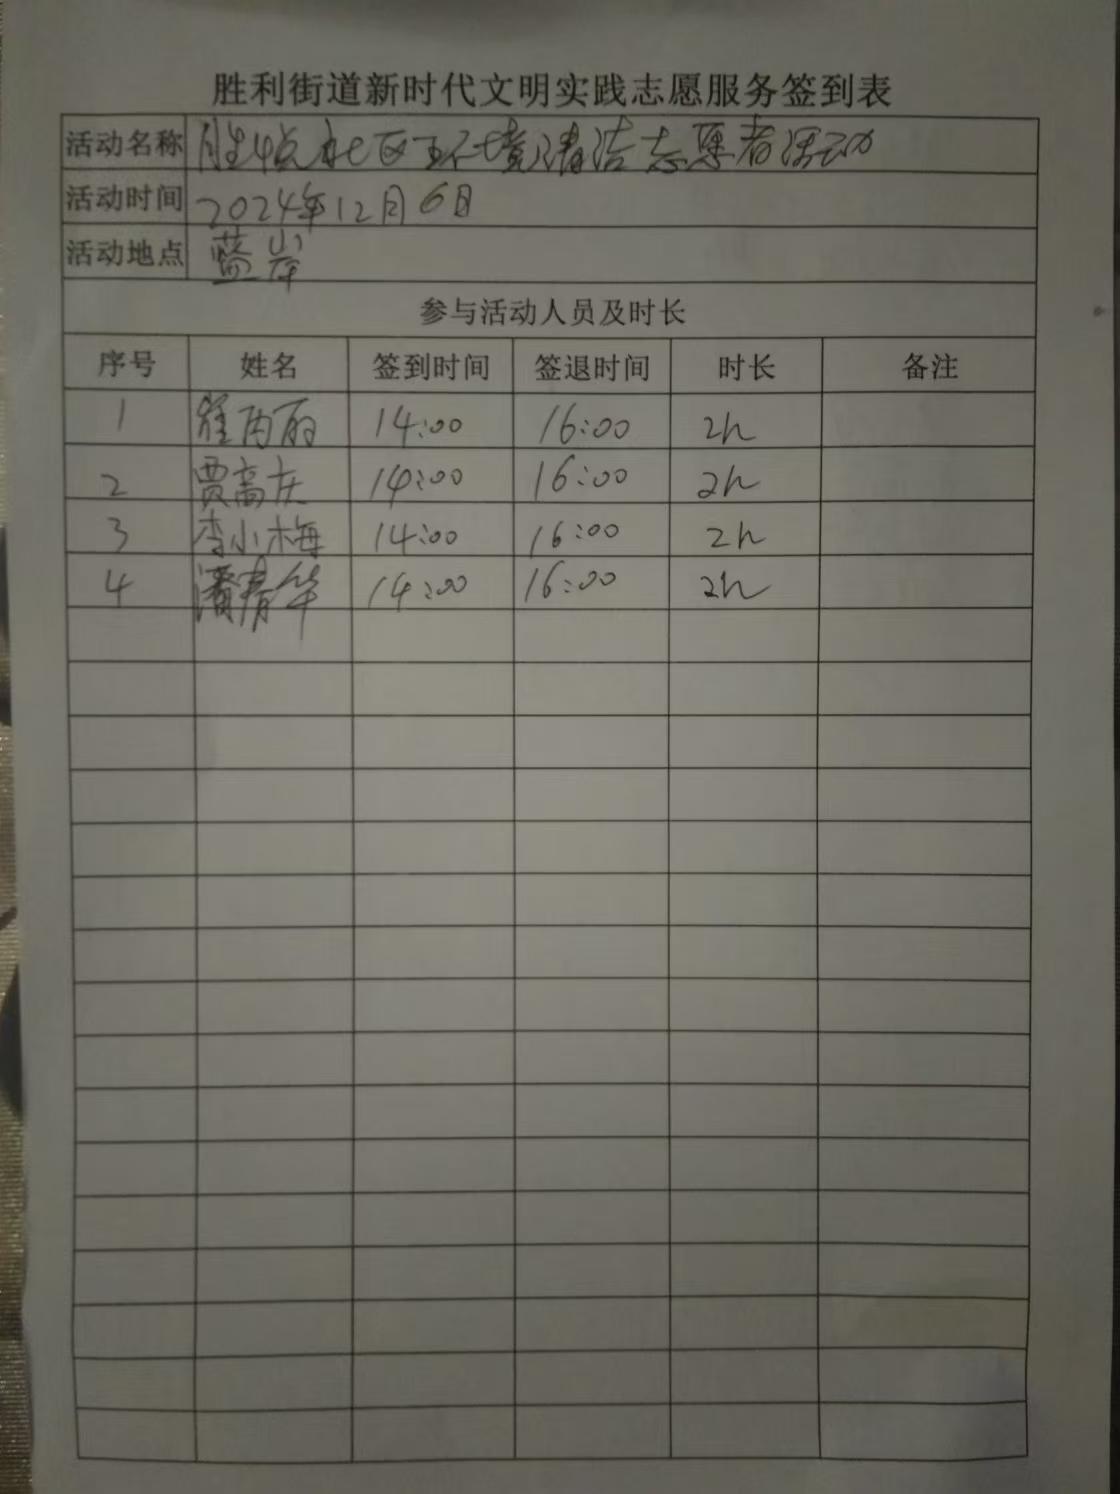 胜利街道新时代文明实践志愿服务签到表
活动名称 胜悦社区环境清洁志愿者活动
活动时间 2024年12月6日
活动地点 蓝岸
参与活动人员及时长
序号 姓名 签到时间 签退时间 时长 备注
1 14:00 16:00 2h
2 贾高庆 14:00 16:00 2h
3 李小梅 14:00 16:00 2h
4 潘春华 14:00 16:00 2h